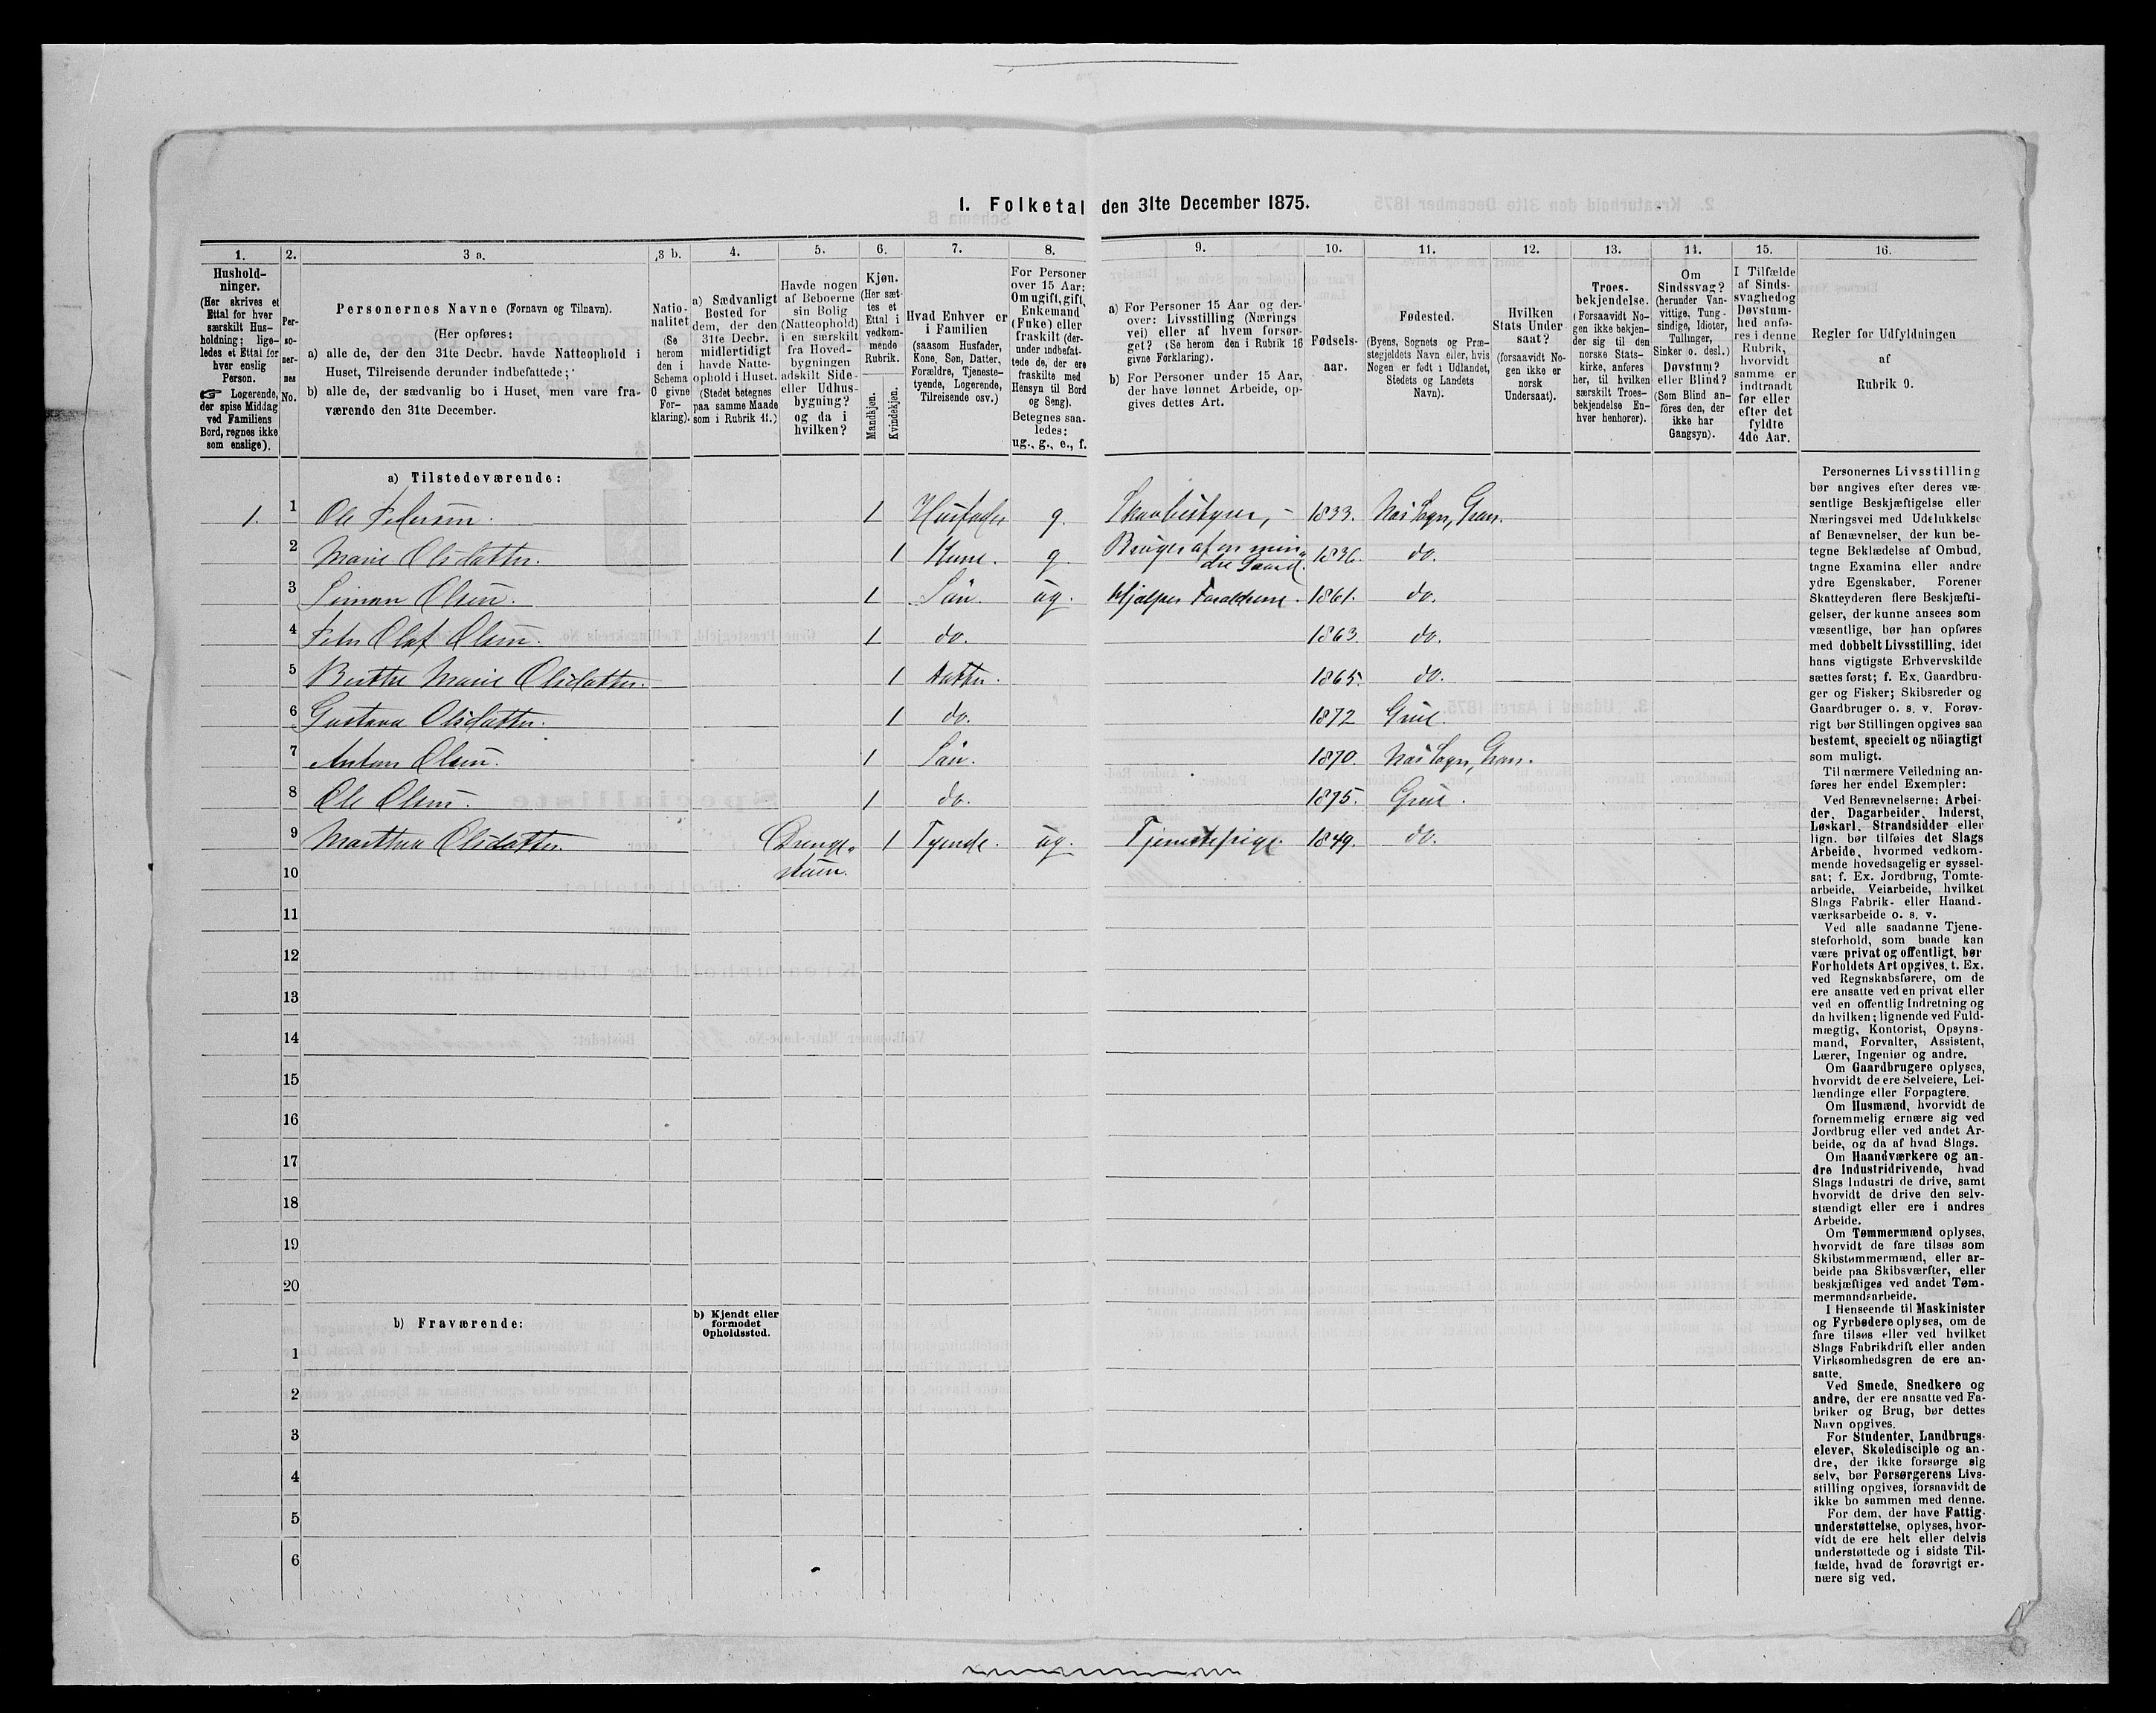 1. Folketal den 31te December 1875.
1.
Hushold-
ninger.
(Her skrives et
Ettal for hver
særskilt Hus-
holdning; lige-
ledes et Ettal for
hver enslig
Person.
Logerende,
der spise Middag
ved Familiens
Bord, regnes ikke
som enslige).
2.
Per-
so-
ner-
nes
No.
3 a.
Personernes Navne (Fornavn og Tilnavn).
(Her opføres:
a) alle de, der den 31te Decbr. havde Natteophold i
Huset, Tilreisende derunder indbefattede;
b) alle de, der sædvanlig bo i Huset, men vare fra-
værende den 31te December.
3 b.
Natio-
nalitet
(Se
herom
den i
Schema
0 givne
For-
klaring).
4.
a) Sædvanligt
Bosted for
dem, der den
31te Decbr.
midlertidigt
havde Natte-
ophold i Huset.
(Stedet betegnes
paa samme Maade
som i Rubrik 11.)
5.
Havde nogen
af Beboerne
sin Bolig
(Natteophold)
i en særskilt
fra Hoved-
bygningen
adskilt Side-
eller Udhus-
bygning?
og da i
hvilken?
6.
Kjøn.
(Her sæt-
tes et
Ettal i
vedkom-
mende
Rubrik.
Mandkjøn.
Kvindekjøn.
7.
Hvad Enhver er
i Familien
(saasom Husfader,
Kone, Søn, Datter,
Forældre, Tjeneste-
tyende, Logerende,
Tilreisende osv.)
8.
For Personer
over 15 Aar:
Om ugift, gift,
Enkemand
(Enke) eller
fraskilt (der-
under indbefat-
tede de, der ere
fraskilte med
Hensyn til Bord
og Seng).
Betegnes saa-
ledes:
ug., g., e., f.
9.
a) For Personer 15 Aar og der-
over: Livsstilling (Nærings
vei) eller af hvem forsør-
get? (Se herom den i Rubrik 16
givne Forklaring).
b) For Personer under 15 Aar,
der have lønnet Arbeide, op-
gives dettes Art.
10.
Fødsels-
aar.
11.
Fødested.
(Byens, Sognets og Præ-
stegjeldets Navn eller, hvis
Nogen er født i Udlandet,
Stedets og Landets
Navn).
12.
Hvilken
Stats Under
saat?
(forsaavidt No-
gen ikke er
norsk
Undersaat).
13.
Troes-
bekjendelse.
(Forsaavidt No-
gen ikke bekjen-
der sig til den
norske Stats-
kirke, anføres
her, til hvilken
særskilt Troes-
bekjendelse En-
hver henhører).
14.
Om
Sindssvag?
(herunder Van-
vittige, Tung-
sindige, Idioter,
Tullinger,
Sinker o. desl.)
Døvstum?
eller Blind?
(Som Blind an-
føres den, der
ikke har
Gangsyn).
15.
I Tilfælde
af Sinds-
svaghed og
Døvstum-
hed anfø-
res i denne
Rubrik,
hvorvidt
samme er
indtraadt
før eller
efter det
fyldte
4de Aar.
16.
Regler for Udfyldningen
af
Rubrik 9.
a) Tilstedeværende:
1. 1 Ole Pedersen. 1 Husfader g. Skovbestyrer, - 1833. Næs Sogn, Gran.
2 Marie Olsdatter. 1 Kone. g. Bruger af en min-
dre Gaard. 1836. do.
3 Simon Olsen. 1 Søn. ug. Hjelper Forældrene. 1861. do.
4 Peter Olaf Olsen. 1 do. 1863. do.
5 Berthe Marie Olsdatter. 1 Datter. 1865. do.
6 Gustava Olsdatter. 1 do. 1872 Grue.
7 Anton Olsen. 1 Søn. 1870. Næs Sogn, Gran.
8 Ole Olsen. 1 do. 1875. Grue.
9 Marthea Olsdatter. Drenge-
stuen. 1 Tyende. ug. Tjenestepige. 1849. do.
10
11
12
13
14
15
16
17
18
19
20
b) Fraværende:
b) Kjendt eller
formodet
Opholdssted.
1
2
3
4
5
6
Personernes Livsstilling
bør angives efter deres væ-
sentlige Beskjæftigelse eller
Næringsvei med Udelukkelse
af Benævnelser, der kun be-
tegne Beklædelse af Ombud,
tagne Examina eller andre
ydre Egenskaber. Forener
Skatteyderen flere Beskjæfti-
gelser, der kunne ansees som
væsentlige, bør han opføres
med dobbelt Livsstilling, idet
hans vigtigste Erhvervskilde
sættes først; f. Ex. Gaardbru-
ger og Fisker; Skibsreder og
Gaardbruger o. s. v. Forøv-
rigt bør Stillingen opgives saa
bestemt, specielt og nöiagtigt
som muligt.
Til nærmere Veiledning an-
føres her endel Exempler:
Ved Benævnelserne: Arbei-
der, Dagarbeider, Inderst,
Løskarl, Strandsidder eller
lign. bør tilføies det Slags
Arbeide, hvormed vedkom-
mende hovedsagelig er syssel-
sat; f. Ex. Jordbrug, Tomte-
arbeide, Veiarbeide, hvilket
Slags Fabrik- eller Haand-
værksarbeide o. s. v.
Ved alle saadanne Tjene-
steforhold, som baade kan
være privat og offentligt, bør
Forholdets Art opgives, t. Ex.
ved Regnskabsførere, om de
ere ansatte ved en privat eller
ved en offentlig Indretning og
da hvilken; lignende ved Fuld-
mægtig, Kontorist, Opsyns-
mand, Forvalter, Assistent,
Lærer, Ingeniør og andre.
Om Gaardbrugere oplyses,
hvorvidt de ere Selveiere, Lei-
lændinge eller Forpagtere.
Om Husmænd, hvorvidt de
fornemmelig ernære sig ved
Jordbrug eller ved andet Ar-
beide, og da af hvad Slags.
Om Haandværkere og an-
dre Industridrivende, hvad
Slags Industri de drive, samt
hvorvidt de drive den selv-
stændigt eller ere i andres
Arbeide.
Om Tømmermænd oplyses,
hvorvidt de fare tilsøs som
Skibstømmermænd, eller ar-
beide paa Skibsværfter, eller
beskjæftiges ved andet Tøm-
mermandsarbeide.
I Henseende til Maskinister
og Fyrbødere oplyses, om de
fare tilsøs eller ved hvilket
Slags Fabrikdrift eller anden
Virksomhedsgren de ere an-
satte.
Ved Smede, Snedkere og
andre, der ere ansatte ved Fa-
briker og Brug, bør dettes
Navn opgives.
For Studenter, Landbrugs-
elever, Skoledisciple og an-
dre, der ikke forsørge sig
selv, bør Forsørgerens Livs-
stilling opgives, forsaavidt de
ikke bo sammen med denne.
For dem, der have Fattig-
understøttelse, oplyses, hvor-
vidt de ere helt eller delvis
understøttede og i sidste Til-
fælde, hvad de forøvrigt er-
nære sig ved.